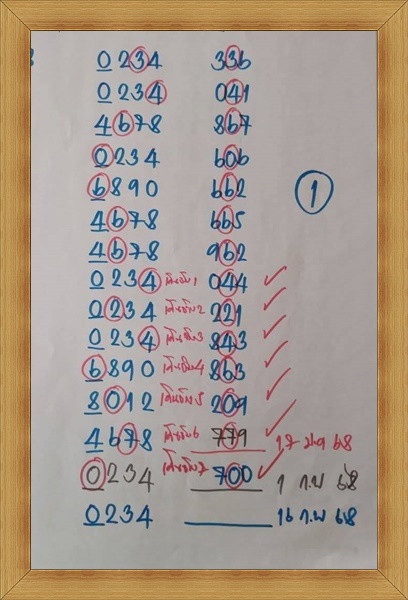 0234 336
0234 041
4678 867
0234 606
6890 662
1
4678 665
4678 962
0234 เดินยับ1 044
0234 เดินยับ2 221
0234 เดินยับ3 843
6890 เดินยับ4 863
8012 เดินยับ5 209
4678 เดินยับ6 779 17 68
0234 700 1 ก.พ 68
0234 16 ก.พ 68